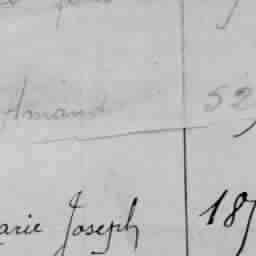 Amand 52
arie Joseph 18